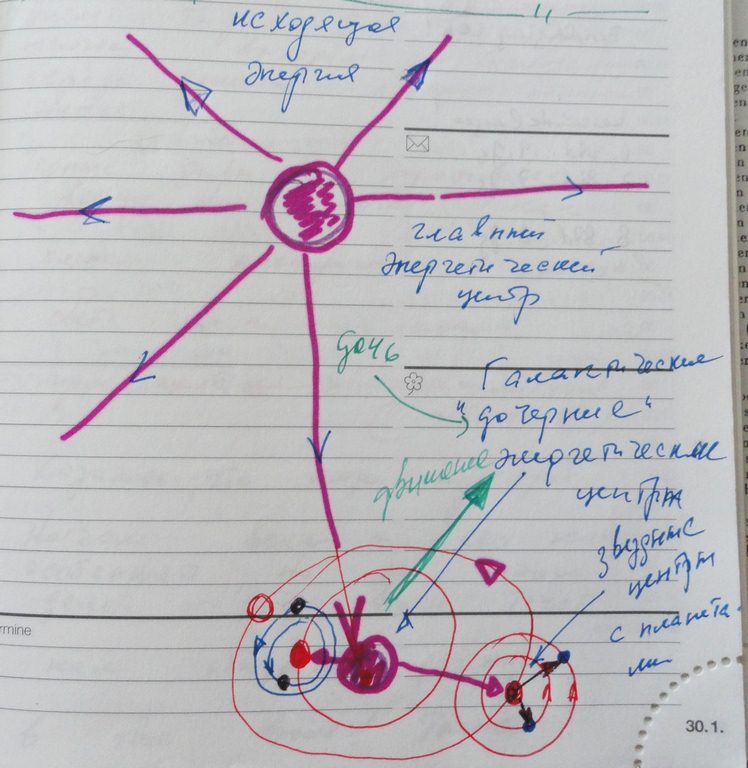 исходящая
энергия
главный
энергетический
центр
дочь
Галактические
"дочерние"
энергетические
центры
движение
звездные
центры
с планета-
ми
rmine
30.1.